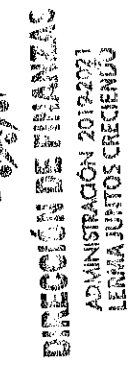 DIRECCIÓN DE FINANZAS
ADMINISTRACIÓN 2019-2021
LERMA JUNTOS CRECIENDO